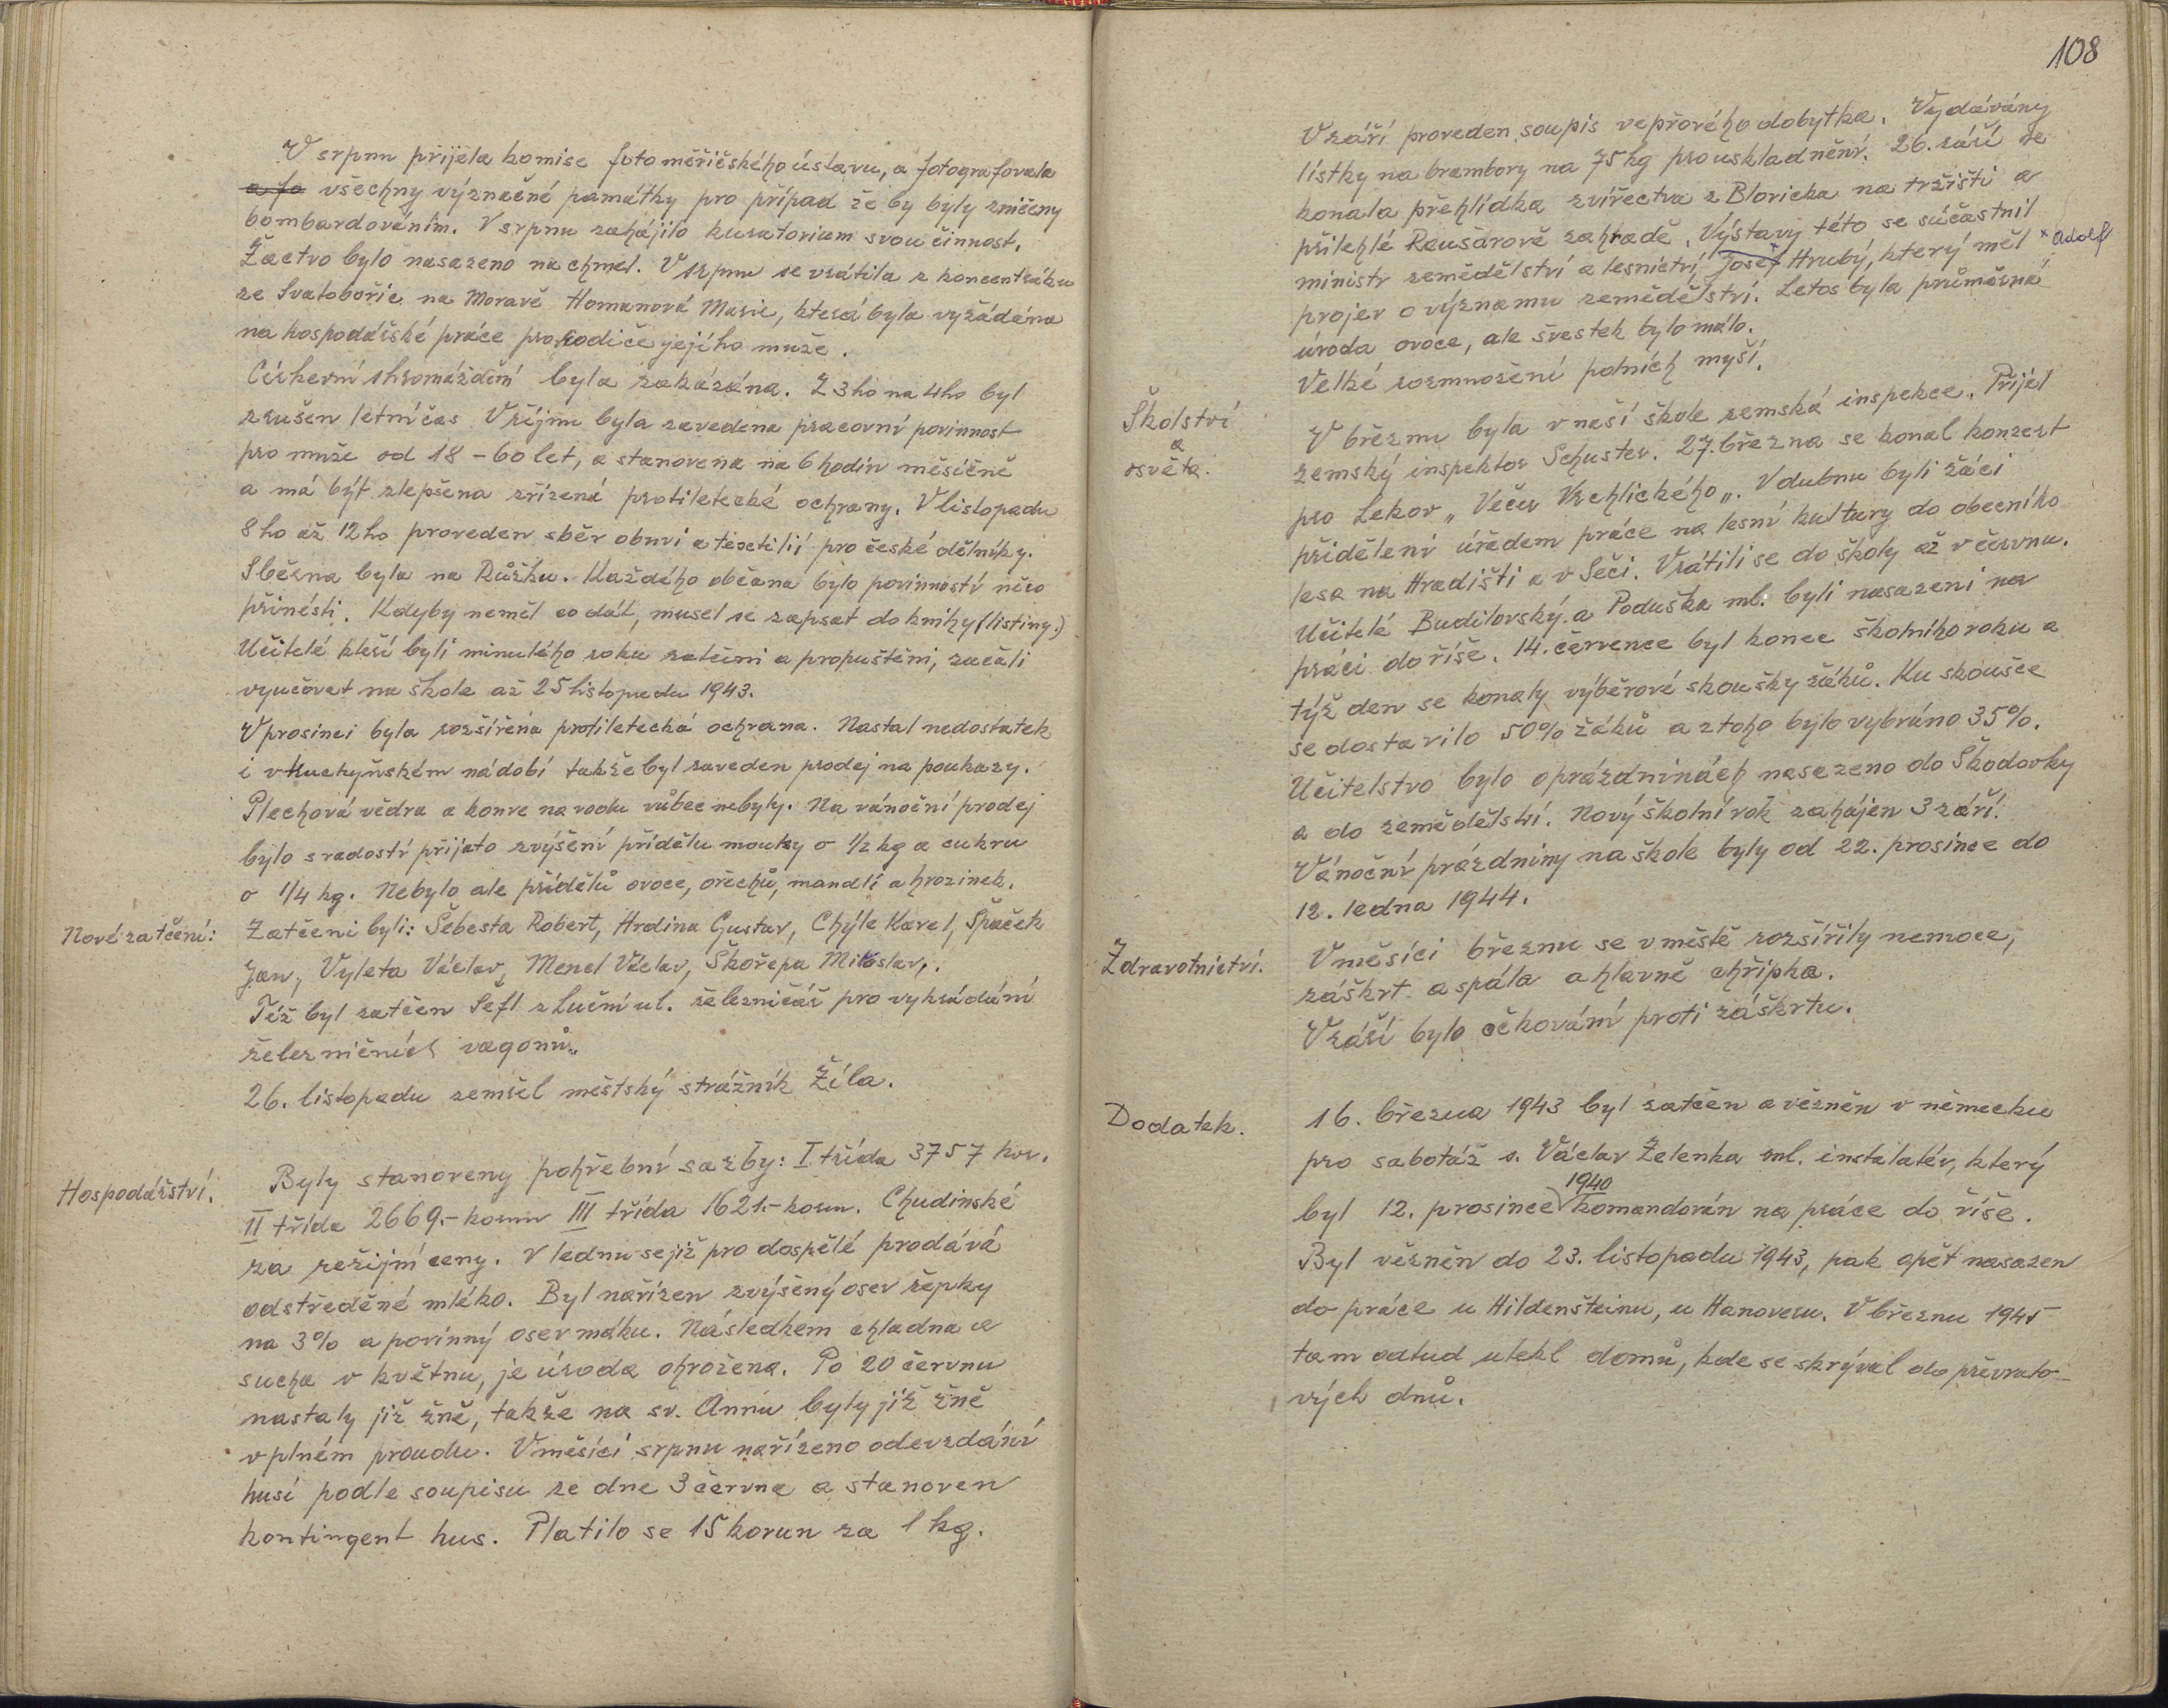 V srpnu přijela komise fotoměřičského ústavu, a fotografovala
a fo všechny význačné památky pro případ že by byly zničeny
bombardováním. V srpnu zahájilo kuratorium svou činnost.
Žactvo bylo nasazeno na chmel. V srpnu se vrátila z koncentráku
ze Svatobořic na Moravě Homanová Marie, která byla vyžádána
na hospodářské práce pro rodiče jejího muže.
Církevní shromáždění byla zakázána. Z 3ho na 4ho byl
zrušen letní čas V říjnu byla zavedena pracovní povinnost
pro muže od 18 - 60 let, a stanovena na 6 hodin měsíčně
a má být zlepšena zřízená protiletecké ochrany. V listopadu
8ho až 12ho proveden sběr obuvi a textilií pro české dělníky.
Sběrna byla na Růžku. Každého občana bylo povinností něco
přinésti. Kdyby neměl co dát, musel se zapsat do knihy (listiny.)
Učitelé kteří byli minulého roku zatčeni a propuštěni, začali
vyučovat na škole až 25 listopadu 1943.
V prosinci byla rozšířena protiletecká ochrana. Nastal nedostatek
i v kuchyňském nádobí takže byl zaveden prodej na poukazy.
Plechová vědra a konve na vodu vůbec nebyly. Na vánoční prodej
bylo s radostí přijato zvýšení přídělu mouky o 1/2 kg a cukru
o 1/4 kg. Nebylo ale přídělů ovoce, ořechů, mandlí a hrozinek.
Nové zatčení: Zatčeni byli: Šebesta Robert, Hrdina Gustav, Chýle Karel, Špaček
Jan, Vyleta Václav, Mencl Václav, Škořepa Miloslav.
Též byl zatčen Šefl z Luční ul. železničář pro vykrádání
železničních vagonů.
26. listopadu zemřel městský strážník Žíla.
Hospodářství. Byly stanoveny pohřební sazby: I třída 3757 kor.
II třída 2669.- korun III třída 1621.- korun. Chudinské
za režijní ceny. V lednu se již pro dospělé prodává
odstředěné mléko. Byl nařízen zvýšený osev řepky
na 3% a povinný osev máku. Následkem chladna a
sucha v květnu, je úroda ohrožena. Po 20 červnu
nastaly již žně, takže na sv. Annu byly již žně
v plném proudu. V měsíci srpnu nařízeno odevzdání
husí podle soupisu ze dne 3 června a stanoven
kontingent hus. Platilo se 15 korun za 1 kg.
108
V září proveden soupis vepřového dobytka. Vydávány
lístky na brambory na 75 kg pro uskladnění. 26. září se
konala přehlídka zvířectva z Blovicka na tržišti a
přilehlé Raušarově zahradě. Výstavy této se súčastnil
ministr zemědělství a lesnictví, Josef × Hrubý, který měl × Adolf
projev o významu zemědělství. Letos byla průměrná
úroda ovoce, ale švestek bylo málo.
Velké rozmnožení polních myší.
Školství
a
osvěta.
V březnu byla v naší škole zemská inspekce. Přijel
zemský inspektor Schuster. 27. března se konal konzert
pro Lekov „Večer Vrchlického„. V dubnu byli žáci
přiděleni úřadem práce na lesní kultury do obecního
lesa na Hradišti a v Seči. Vrátili se do školy až v červnu.
Učitelé Budilovský a Poduška ml. byli nasazeni na
práci do říše. 14. července byl konec školního roku a
týž den se konaly výběrové skoušky žáků. Ku skoušce
se dostavilo 50% žáků a z toho bylo vybráno 35%.
Učitelstvo bylo o prázdninách nasazeno do Škodovky
a do zemědělství. Nový školní rok zahájen 3 září.
Vánoční prázdniny na škole byly od 22. prosince do
12. ledna 1944.
Zdravotnictví. V měsíci březnu se v městě rozšířily nemoce,
záškrt a spála a hlavně chřipka.
V září bylo očkování proti záškrtu.
Dodatek. 16. března 1943 byl zatčen a vězněn v německu
pro sabotáž s. Václav Zelenka ml. instalatér, který
byl 12. prosince 1940 komandován na práce do říše.
Byl vězněn do 23. listopadu 1943, pak opět nasazen
do práce u Hildenšteinu, u Hanoveru. V březnu 1945
tam odtud utekl domů, kde se skrýval do převrato-
vých dnů.